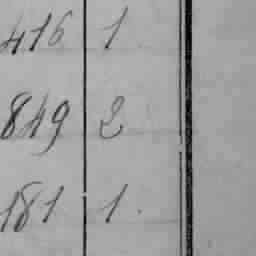 416 1
849 2
181 1.